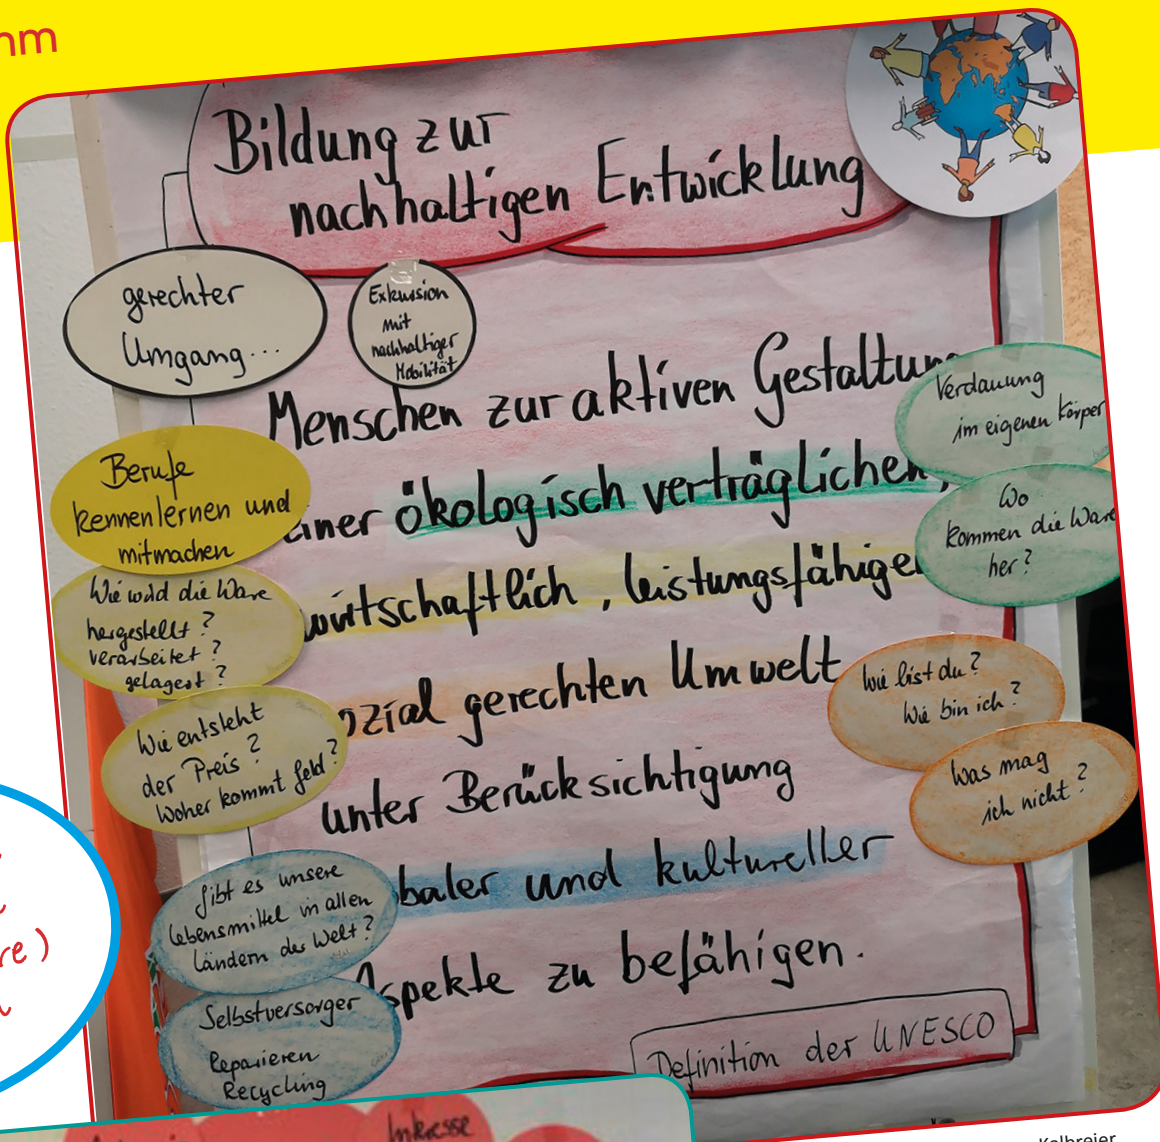 Bildung zur
nachhaltigen Entwicklung
gerechter
Umgang...
Exkursion
mit
nachhaltiger
Mobilität
Menschen zur aktiven Gestaltung
einer ökologisch verträglichen,
wirtschaftlich, leistungsfähigen
sozial gerechten Umwelt
unter Berücksichtigung
baler und kultureller
Aspekte zu befähigen.
Definition der UNESCO
Berufe
kennenlernen und
mitmachen
Wie wird die Ware
hergestellt?
verarbeitet?
gelagert?
Wie entsteht
der Preis?
Woher kommt Geld?
Gibt es unsere
Lebensmittel in allen
Ländern der Welt?
Selbstversorger
Reparieren
Recycling
Verdauung
im eigenen Körper
Wo
kommen die Ware
her?
Wie bist du?
Wie bin ich?
Was mag
ich nicht?
Interesse